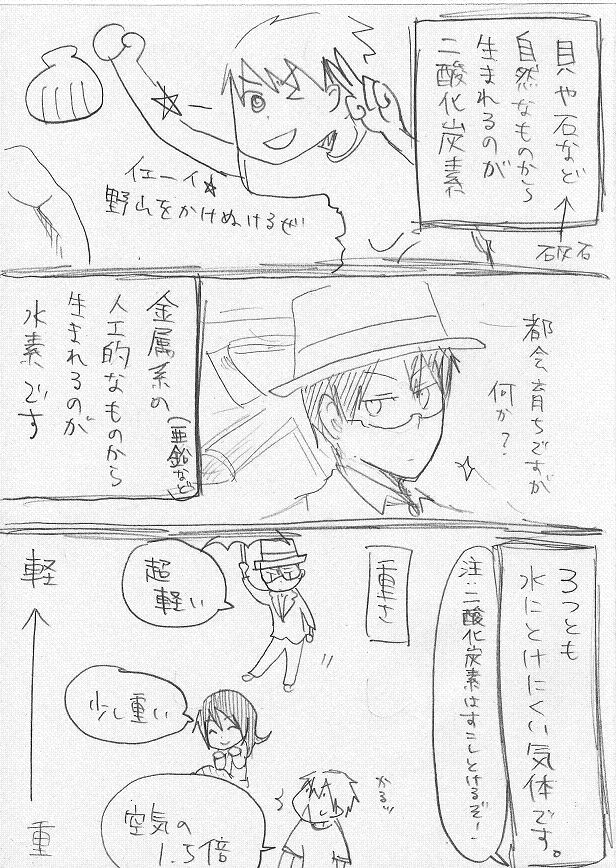 貝や石など
自然なものから
生まれるのが
二酸化炭素
石灰石
イエーイ☆
野山をかけぬけるぜ!
都会育ちですが
何か?
金属系の
(亜鉛など)
人工的なものから
生まれるのが
水素です
3つとも
水にとけにくい気体です。
注:二酸化炭素はすこしとけるぞー!
重さ
超
軽い
軽
少し重い
かるッ
空気の
1.5倍
重